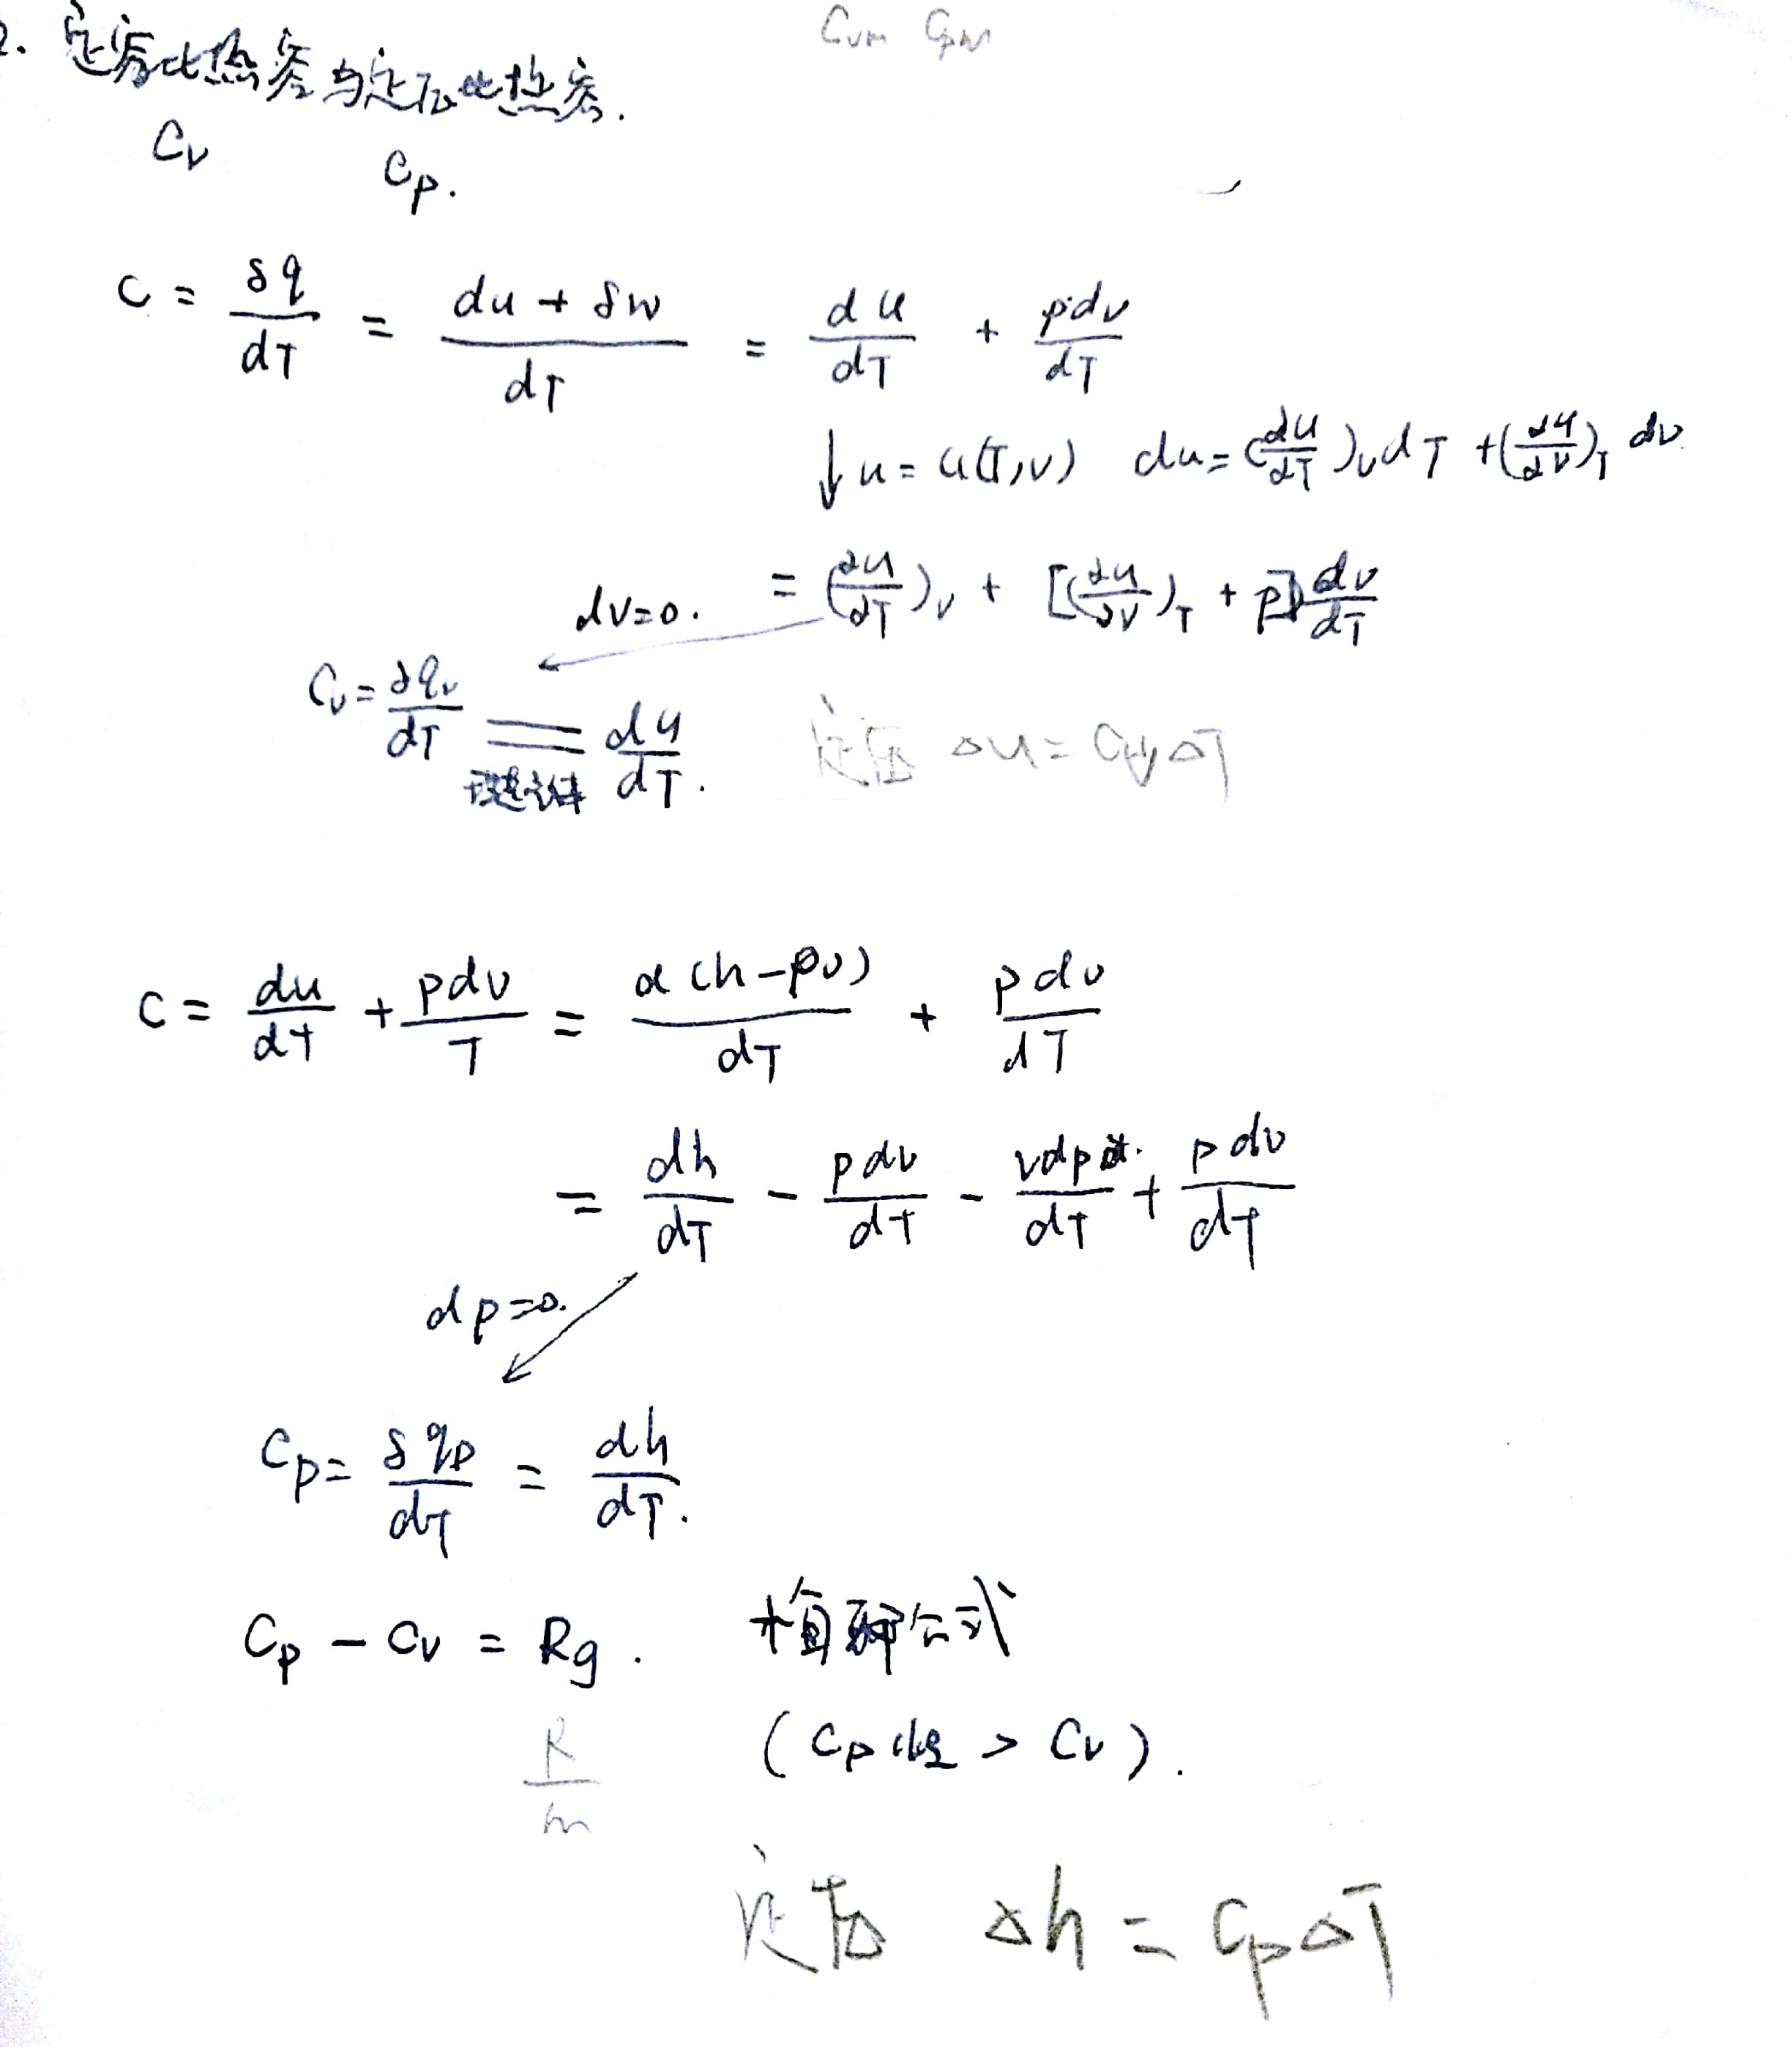 2. 定容比热容与定压比热容.
Cvm Cpm
Cv Cp.
c = δq/dT = (du + δw)/dT = du/dT + pdv/dT
↓ u = u(T,v) du = (∂u/∂T)v dT + (∂u/∂v)T dv
dv=0. = (∂u/∂T)v + [(∂u/∂v)T + p] dv/dT
Cv = δqv/dT = du/dT.
定压 Δu = CvΔT
c = du/dT + pdv/T = d(h-pv)/dT + pdv/dT
= dh/dT - pdv/dT - vdp/dT + pdv/dT
dp=0.
Cp = δqp/dT = dh/dT.
Cp - Cv = Rg. 梅耶公式
R/m (Cp 恒 > Cv).
定压 Δh = CpΔT